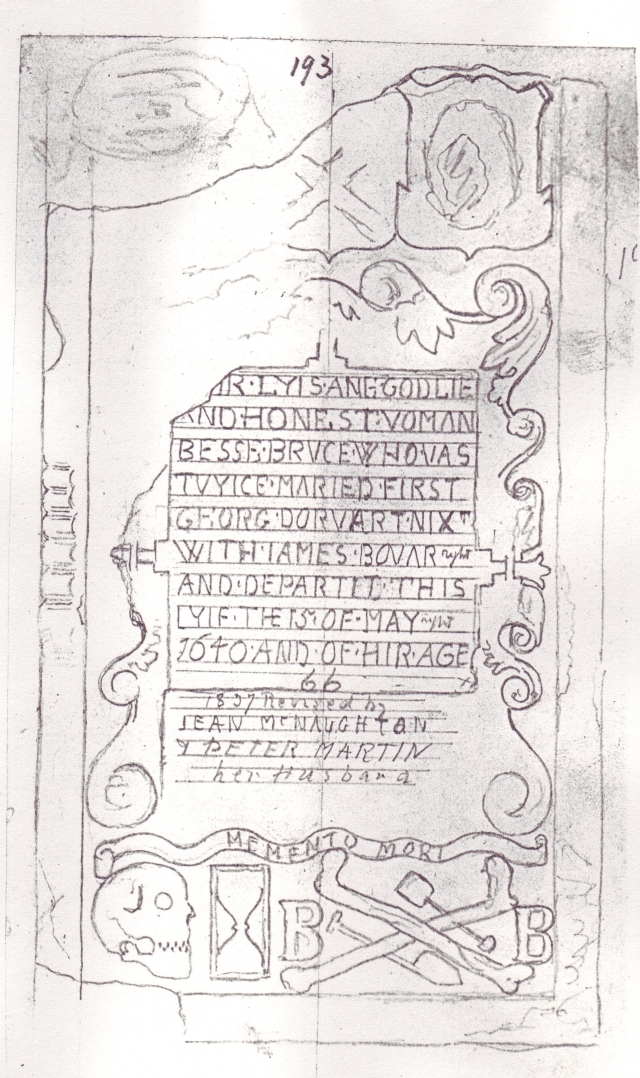 193
IR·LYIS·ANG·GODLIE
AND·HONEST·VOMAN
BESSE·BRVCE·WHO·VAS
TVYICE·MARIED·FIRST
GEORG·DORVART·NIXT
WITH·IAMES·BOVAR right
AND·DEPARTIT·THIS
LYIF·THE·15·OF·MAY right
1640·AND·OF·HIR·AGE
66
1837 Revised by
JEAN McNAUGHTON
& PETER MARTIN
her Husband
MEMENTO MORI
B B